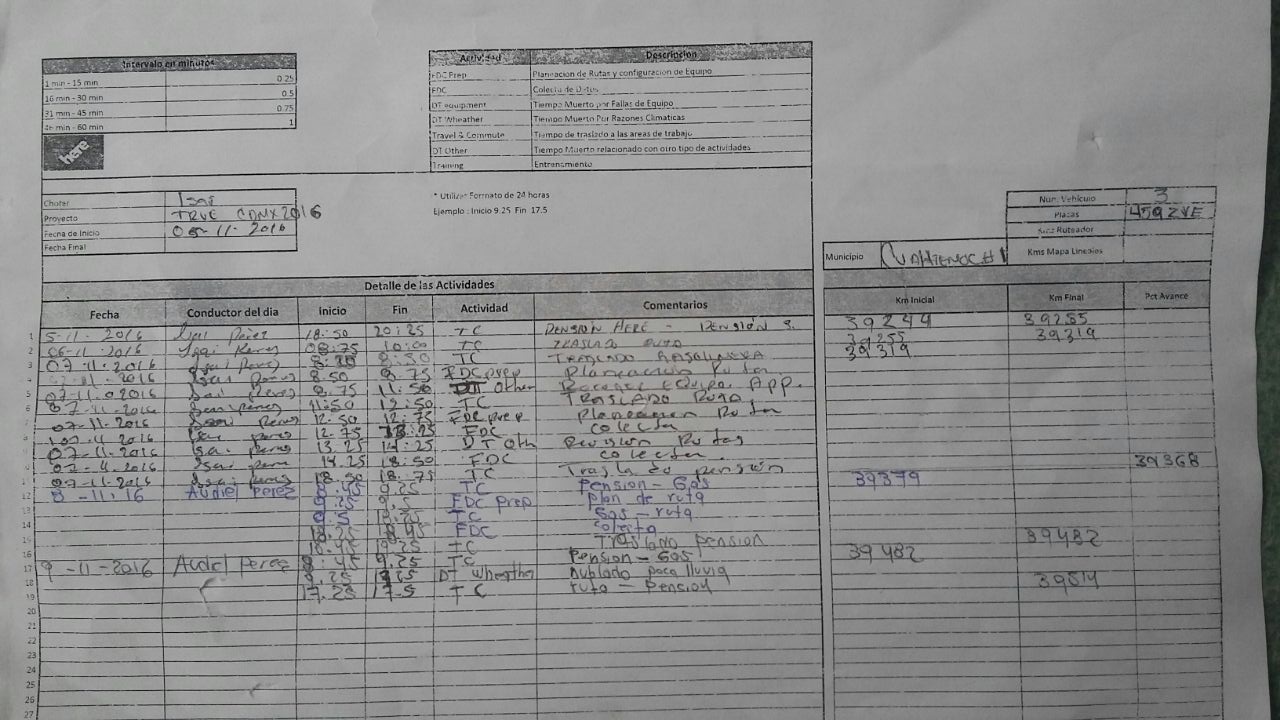 Intervalo en minutos
1 min - 15 min 0.25
16 min - 30 min 0.5
31 min - 45 min 0.75
46 min - 60 min 1
here
Actividad Descripcion
FDC Prep Planeacion de Rutas y configuracion de Equipo
FDC Colecta de Datos
DT equipment Tiempo Muerto por Fallas de Equipo
DT Wheather Tiempo Muerto Por Razones Climaticas
Travel & Commute Tiempo de traslado a las areas de trabajo
DT Other Tiempo Muerto relacionado con otro tipo de actividades
Training Entrenamiento
* Utilizar Formato de 24 horas
Ejemplo : Inicio 9.25 Fin 17.5
Chofer Isai
Proyecto TRUE CDMX 2016
Fecha de Inicio 05-11-2016
Fecha Final
Num. Vehiculo 3
Placas 459ZVE
Kms Ruteador
Kms Mapa Lineales
Municipio
Detalle de las Actividades
Fecha Conductor del dia Inicio Fin Actividad Comentarios Km Inicial Km Final Pct Avance
1 5-11-2016 Isai Perez 18:50 20:25 TC PENSIÓN HERE - PENSIÓN 3. 39244 39255
2 06-11-2016 Isai Perez 08:75 10:00 TC TRASLADO RUTA 39255 39319
3 07-11-2016 Isai Perez 8:50 TC TRASLADO GASOLINERA 39319
4 2016 Isai Perez 8.50 8.75 FDC prep Planeacion Ruta.
5 07-11-2016 Isai Perez 8.75 11.50 DT Other Recoger Equipo App.
6 07-11-2016 Isai Perez 11.50 12:50 TC TRASLADO RUTA.
7 07-11-2016 Isai Perez 12.50 12.75 FDC prep Planeacion Ruta
8 2016 Isai perez 12.75 FDC colecta
9 07-11-2016 Isai perez 13.25 14.25 DT Oth Revisión Rutas
10 2016 Isai perez 14.25 18:50 FDC colecta.
11 07-11-2016 Isai perez 18.50 18.75 TC Traslado pensión 39368
12 8-11-16 Audiel Perez 8.45 9.25 TC Pension - Gas 39379
13 FDC prep plan de ruta
14 9.5 TC Gas - ruta
15 FDC colecta
16 18.45 19.25 TC Traslado pension 39482
17 9-11-2016 Audiel Perez TC Pension - Gas 39482
18 9.25 DT Wheather Nublado poca lluvia
19 17.25 17.5 TC ruta - Pension 39514
20
21
22
23
24
25
26
27